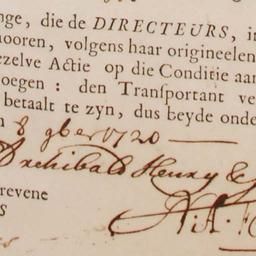 nge, die de DIRECTEURS, in
hooren, volgens haar origineelen
ezelve Actie op die Conditie aan
oegen : den Tranſportant ve
betaalt te zyn, dus beyde onde
n 8 gber 1720
Archibald Henry &
revene
S